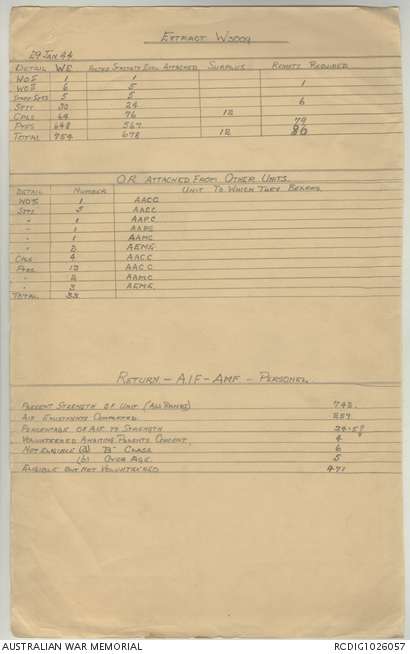 EXTRACT W3009
29 JAN 44
DETAIL WE POSTED STRENGTH INCL. ATTACHED SURPLUS REINFTS REQUIRED
WOI 1 1
WOII 6 5 1
STAFF SGTS 5 5
SGTS 30 24 6
CPLS 64 76 12
PTES 648 567 79
TOTAL 754 678 12 86
OR ATTACHED FROM OTHER UNITS.
DETAIL NUMBER UNIT TO WHICH THEY BELONG
WOII 1 AACC
SGTS 5 AACC
" 1 AAPC
" 1
" 1 AAMC
" 2 AEME
CPLS 4 AACC
PTES 13 AACC
" 2 AAMC
" 3 AEME
TOTAL 33
RETURN - AIF - AMF - PERSONEL.
PRESENT STRENGTH OF UNIT (ALL RANKS) 743.
AIF ENLISTMENTS COMPLETED 257.
PERCENTAGE OF AIF TO STRENGTH
VOLUNTEERED AWAITING PARENTS CONCENT. 4
NOT ELIGIBLE (a) "B" CLASS 6
(b) OVER AGE 5
ELIGIBLE BUT NOT VOLUNTEERED 471
AUSTRALIAN WAR MEMORIAL RCDIG1026057